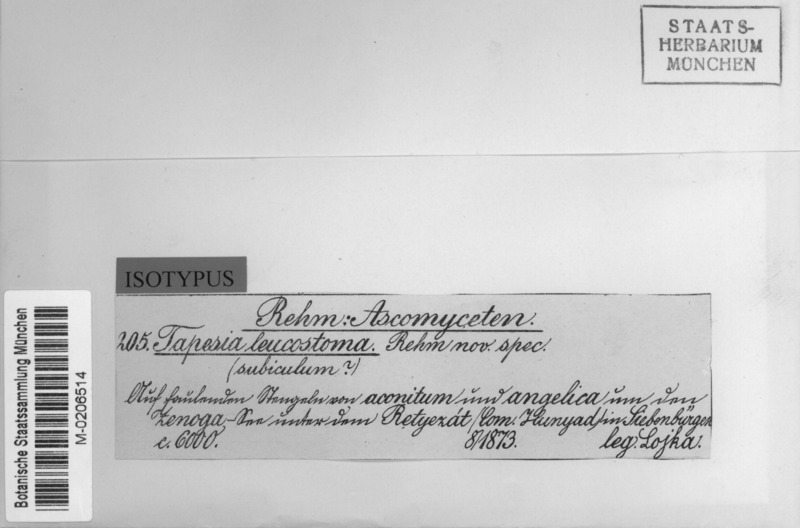 STAATS-
HERBARIUM
MÜNCHEN
ISOTYPUS
Rehm: Ascomyceten.
205. Tapesia leucostoma. Rehm nov. spec.
(subiculum?)
Auf faulenden Stengeln von aconitum und angelica um den
Zenoga-See unter dem Retyezát /Com. Hunyad/ in Siebenbürgen
c. 6000. 8/1873. leg. Lojka.
Botanische Staatssammlung München
M-0206514